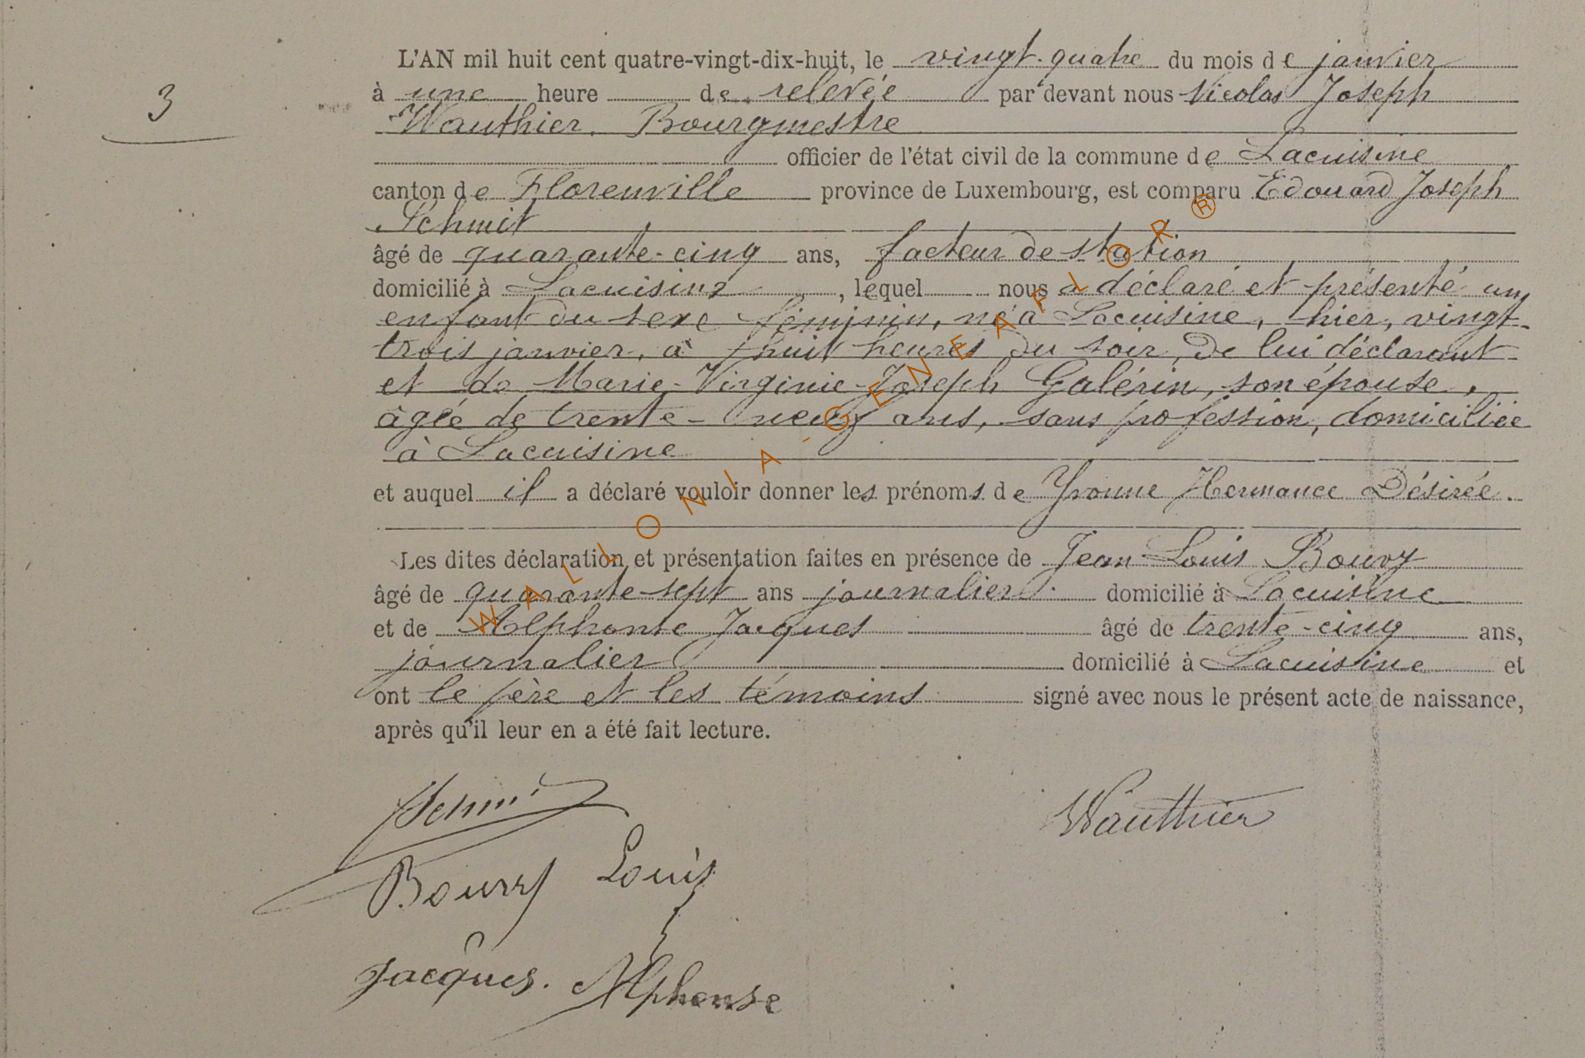 L'AN mil huit cent quatre-vingt-dix-huit, le vingt-quatre du mois de janvier
3
à une heure de relevée par devant nous Nicolas Joseph
Wauthier, Bourgmestre
officier de l'état civil de la commune de Lacuisine
canton de Florenville province de Luxembourg, est comparu Edouard Joseph
Schmit
âgé de quarante-cinq ans, facteur de station
domicilié à Lacuisine, lequel nous a déclaré et présenté un
enfant du sexe féminin, né à Lacuisine, hier, vingt-
trois janvier, à huit heures du soir, de lui déclarant
et de Marie-Virginie-Joseph Galérin, son épouse,
âgée de trente-neuf ans, sans profession, domiciliée
à Lacuisine
et auquel il a déclaré vouloir donner les prénoms de Yvonne Hermance Désirée.
Les dites déclaration et présentation faites en présence de Jean-Louis Bouvy
âgé de quarante-sept ans journalier domicilié à Lacuisine
et de Alphonse Jacques âgé de trente-cinq ans,
journalier domicilié à Lacuisine et
ont le père et les témoins signé avec nous le présent acte de naissance,
après qu'il leur en a été fait lecture.
Schmit
Wauthier
Bouvy Louis
Jacques. Alphonse
WALLONIA-GENEAFLOR®